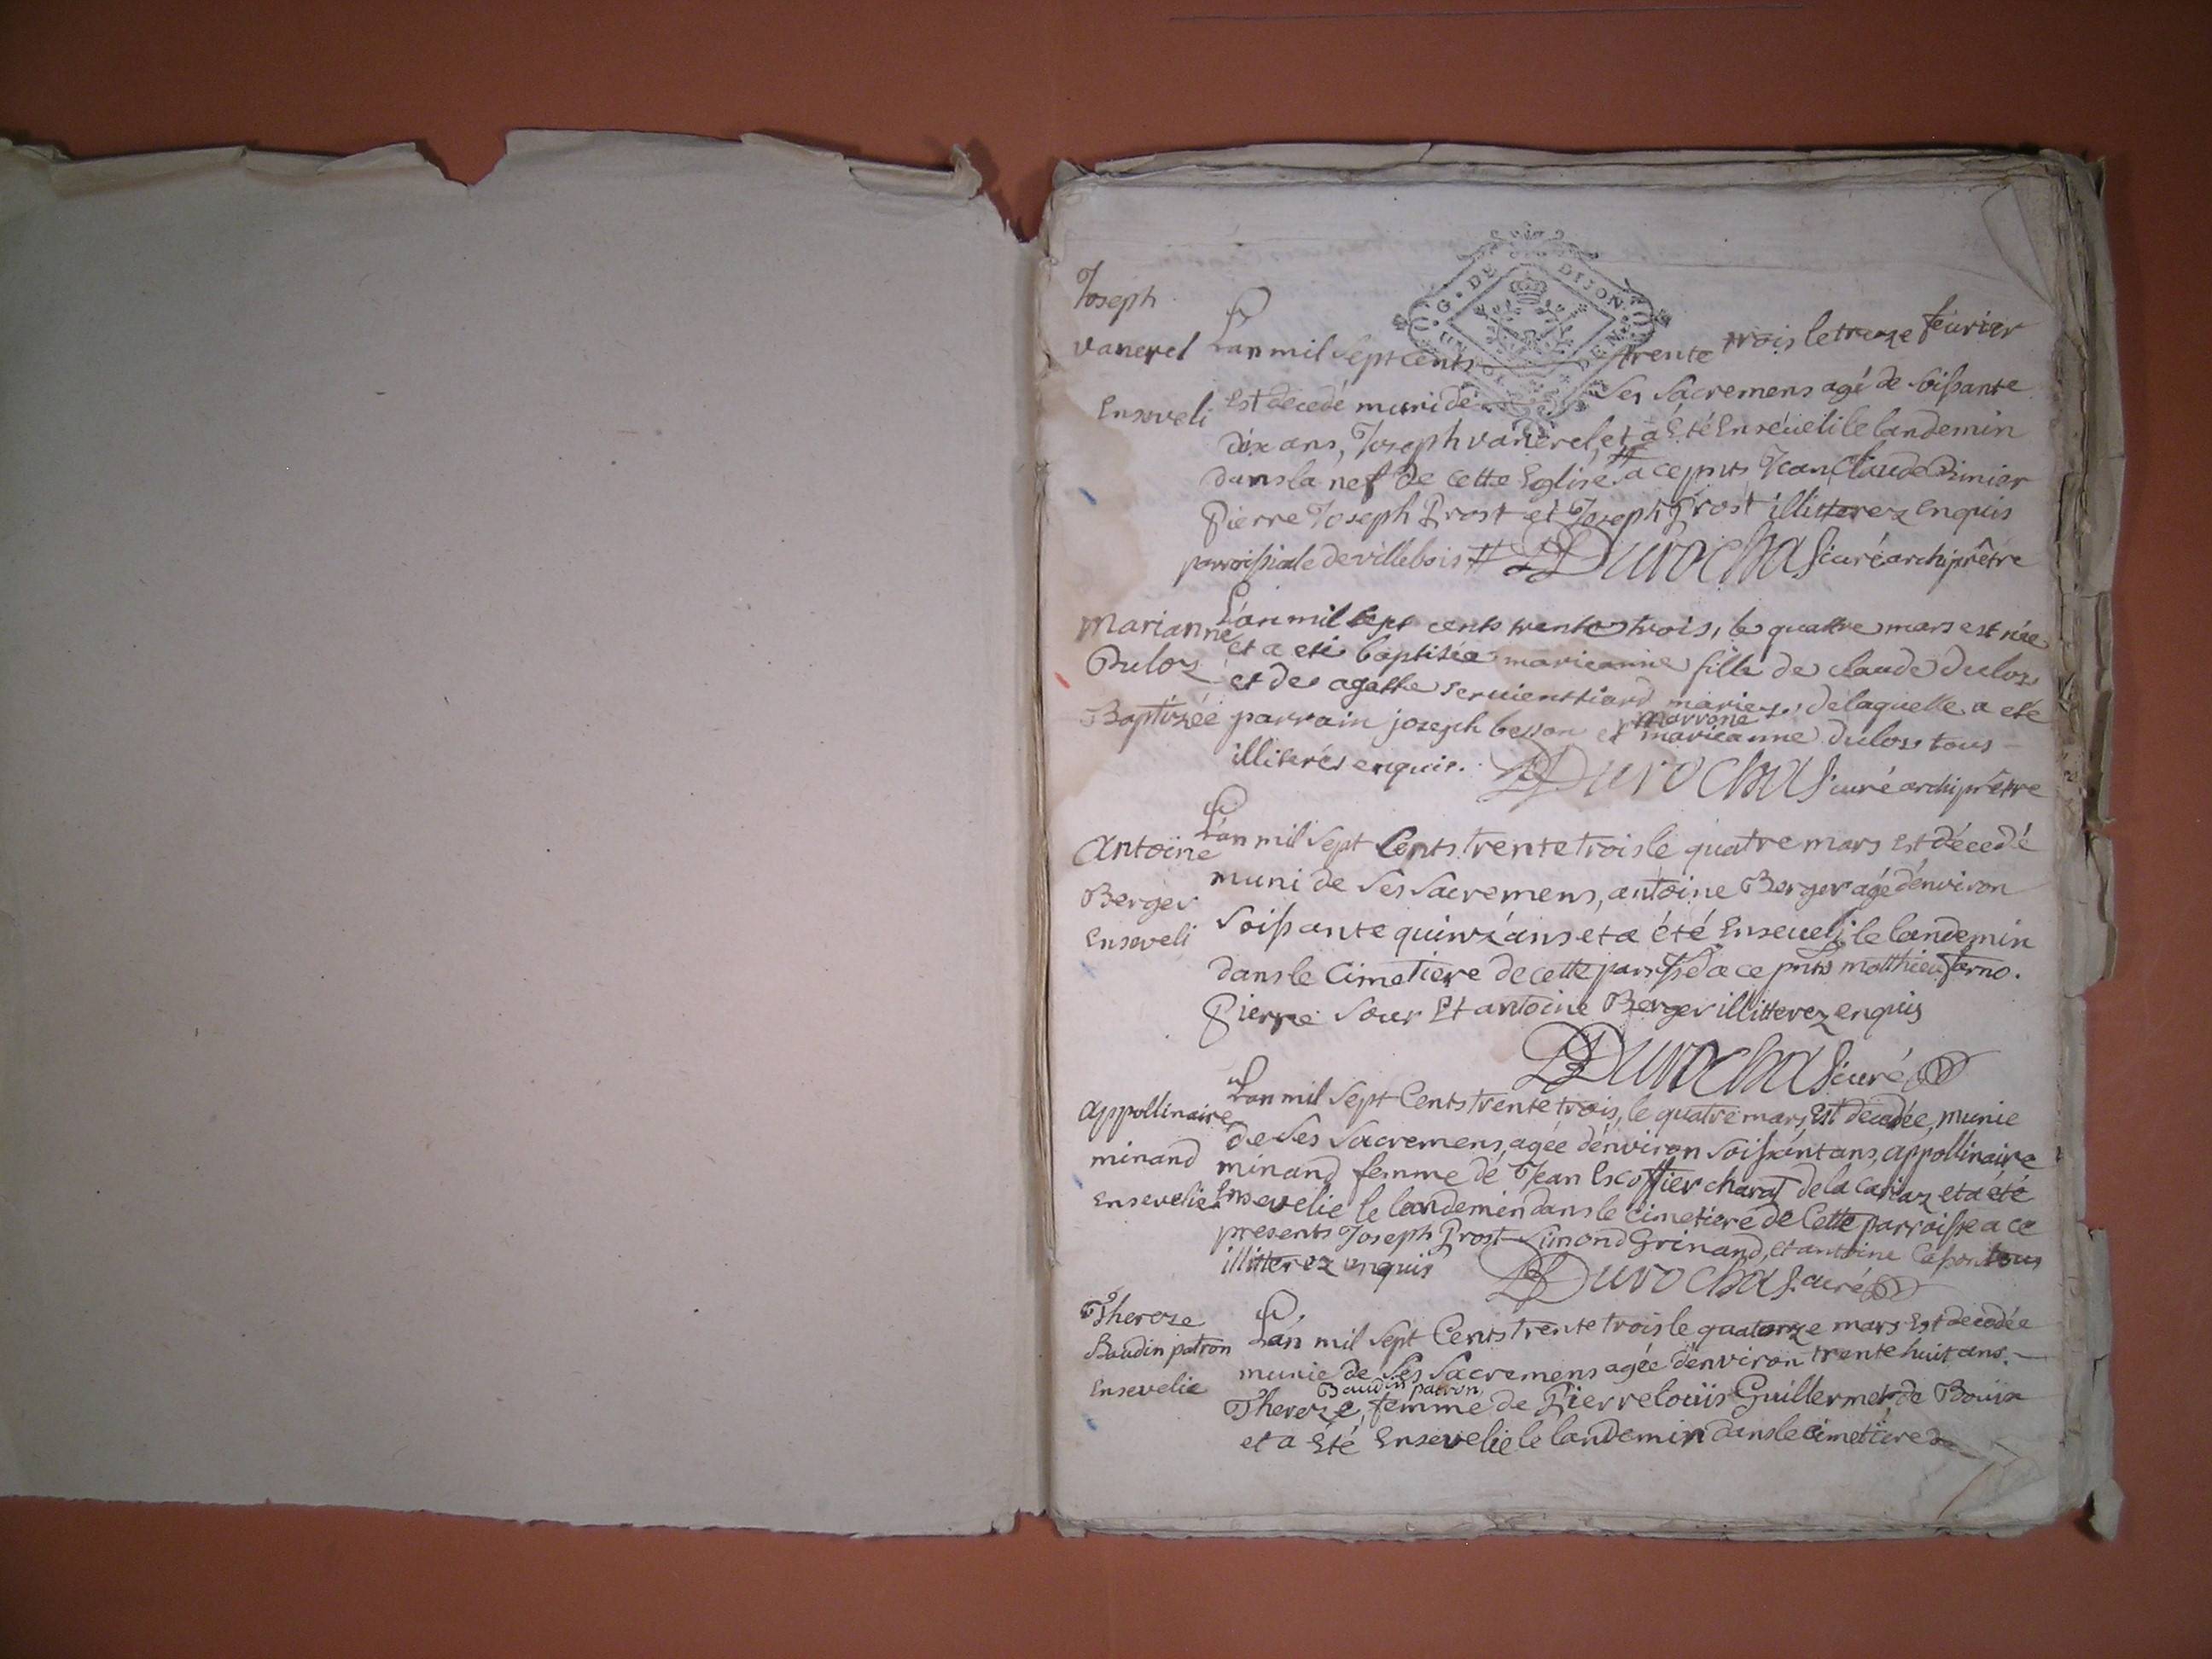 G. DE DIJON
UN DEN
Joseph
vanerel
Enseveli
L'an mil sept cents trente trois le treize feurier
Est decedé muni de ses sacremens agé de soissante
dix ans, Joseph vanerel, et a Eté Enséueli le landemin
dans la nef de cette Eglise # a ce pnts Jean Claude Dimier
Pierre Joseph Prost et Joseph Prost illitterez enquis
parroissiale de villebois # Durochas curé archiprêtre
Marianne
Duloz
Baptizée
L'an mil sept cents trente trois, le quattre mars est née
et a eté baptisée marieanne fille de claude duloz
et de agathe seruienttiard mariez, de laquelle a eté
parrain joseph besson et marrene marieanne duloz tous
illiterés enquis. Durochas curé archiprêtre
Antoine
Berger
Enseveli
L'an mil sept Cents trente trois le quatre mars Est décedé
muni de ses sacremens, antoine Berger agé d'environ
soissante quinz'ans et a été Enseueli le landemin
dans le Cimetiere de cette parsse a ce pnts matthieu ferno.
Pierre sour Et antoine Berger illitterez enquis
Durochas curé
Appollinaire
minand
Ensevelie
L'an mil sept Cents trente trois, le quatre mars, Est decedée, munie
de ses sacremens, agée d'environ soissant ans, appollinaire
minand femme de Jean Escoffier charat de la cariaz et a été
Ensevelie le landemin dans le cimetiere de Cette parroisse a ce
presents Joseph Prost Simond Grinand, et antoine Capon tous
illitterez enquis Durochas curé
Thereze
Baudin patron
Ensevelie
L'an mil sept Cents trente trois le quatorze mars Est decedée
munie de ses sacremens agée d'environ trente huit ans.
Thereze Baudin patron, femme de Pierre loüis Guillermet de Bouix
et a Eté Ensevelie le landemin dans le cimetiere de